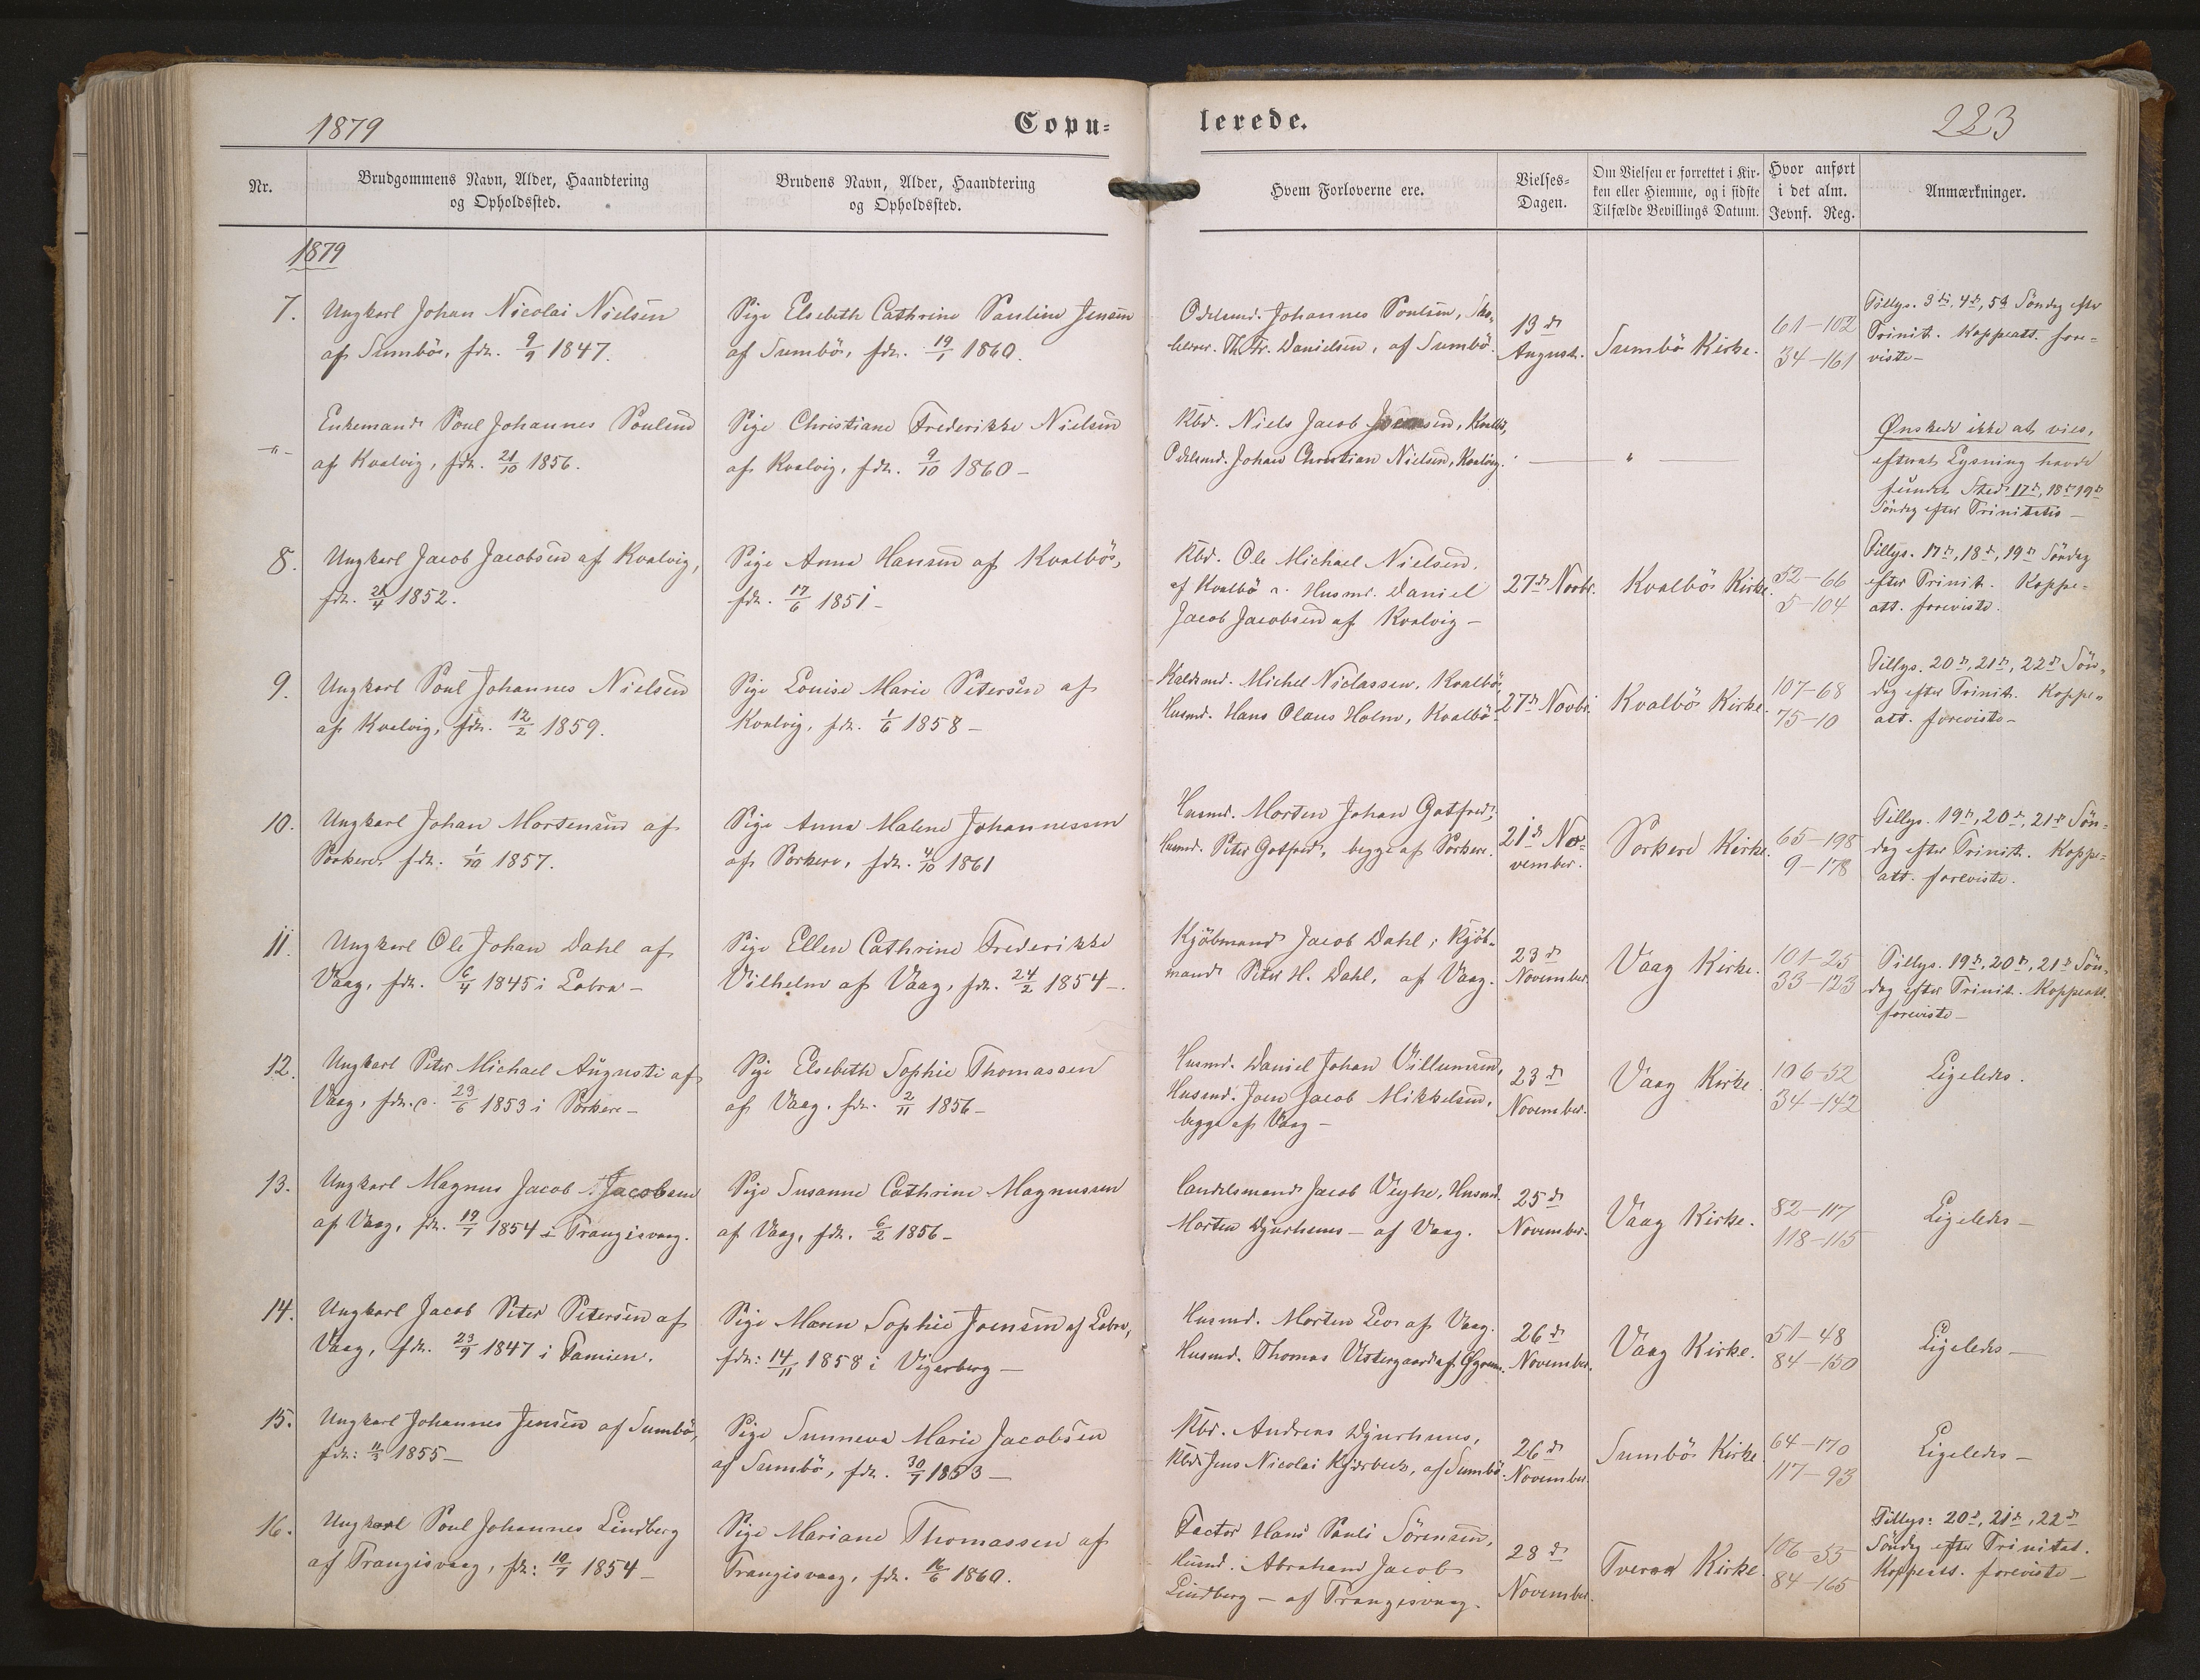 1879
Copu-
lerede.
223
Nr.
Brudgommens Navn, Alder, Haandtering
og Opholdssted.
Brudens Navn, Alder, Haandtering
og Opholdssted.
Hvem Forloverne ere.
Vielses-
Dagen.
Om Vielsen er forrettet i Kir-
ken eller Hiemme, og i sidste
Tilfælde Bevillings Datum.
Hvor anført
i det alm.
Jevnf. Reg.
Anmærkninger.
1879
7.
Ungkarl Johan Nicolai Nielsen
af Sumbö, fdt. 9/9 1847.
Pige Elsebeth Cathrine Pauline Jensen
af Sumbö, fdt. 19/1 1860.
Odelsmd. Johannes Poulsen,
Th. Fr. Danielsen, af Sumbö.
13 dt
August.
Sumbö Kirke.
61-102
34-161
Tillys. 3dt, 4dt, 5dt Söndag efter
Trinit. Koppeatt. fore-
viste-
-"-
Enkemand Poul Johannes Poulsen
af Kvalvig, fdt. 21/10 1856.
Pige Christiane Frederikke Nielsen
af Kvalvig, fdt. 9/10 1860-
Kbd. Niels Jacob Joensen, Kvalbö,
Odelsmd. Johan Christian Nielsen, Kvalvig.
— " —
Ønskede ikke at vies,
efterat Lysning havde
fundet Sted 17dt, 18dt 19dt
Söndag efter Trinitatis-
8.
Ungkarl Jacob Jacobsen af Kvalvig,
fdt. 21/4 1852.
Pige Anna Hansen af Kvalbö,
fdt. 17/6 1851-
Kbd. Ole Michael Nielsen,
af Kvalbö Husmd. Daniel
Jacob Jacobsen af Kvalvig-
27dt Novbr.
Kvalbö Kirke.
52-66
5-104
Tillys. 17dt, 18dt, 19dt Söndag
efter Trinit. Koppe-
att. foreviste.
9.
Ungkarl Poul Johannes Nielsen
af Kvalvig, fdt. 12/2 1859.
Pige Louise Marie Petersen af
Kvalvig, fdt. 1/6 1858-
Michel Niclassen, Kvalbö,
Husmd. Hans Olaus Holm, Kvalbö
27dt Novbr.
Kvalbö Kirke.
107-68
75-10
Tillys. 20dt, 21dt, 22dt Sön-
dag efter Trinit. Koppe-
att. foreviste-
10.
Ungkarl Johan Mortensen af
Porkere, fdt. 1/10 1857.
Pige Anna Malene Johannessen
af Porkere, fdt. 4/10 1861
Husmd. Morten Johan Gotfred,
Husmd. Peter Gotfred, begge af Porkere.
21dt No-
vember.
Porkere Kirke.
65-198
9-178
Tillys. 19dt, 20dt, 21dt Sön-
dag efter Trinit. Koppe-
att. foreviste.
11.
Ungkarl Ole Johan Dahl af
Vaag, fdt. 6/4 1845 i Lobra-
Pige Ellen Cathrine Frederikke
Vilhelm af Vaag, fdt. 24/2 1854-
Kjöbmand Jacob Dahl, Kjöb-
mand Peter H. Dahl, af Vaag.
23 dt
November.
Vaag Kirke.
101-25
33-123
Tillys. 19dt, 20dt, 21dt Sön-
dag efter Trinit. Koppeatt.
foreviste-
12.
Ungkarl Peter Michael Augusti af
Vaag, fdt. 23/6 1853 i Porkere-
Pige Elsebeth Sophie Thomassen
af Vaag, fdt. 2/11 1856-
Husmd. Daniel Johan Villumsen,
Husmd. Joen Jacob Mikkelsen,
begge af Vaag-
23 dt
November.
Vaag Kirke
106-52
34-142
Ligeledes.
13.
Ungkarl Magnus Jacob Jacobsen
af Vaag, fdt. 19/7 1854 i Trangisvaag.
Pige Susanne Cathrine Magnussen
af Vaag, fdt. 6/2 1856-
Handelsmand Jacob Veyhe, Husmd.
Morten Djurhuus- af Vaag.
25 dt
November.
Vaag Kirke.
82-117
118-115
Ligeledes-
14.
Ungkarl Jacob Peter Petersen af
Vaag, fdt. 23/9 1847 i Famien.
Pige Maren Sophie Joensen af Lobra,
fdt: 14/11 1858 i Vigarberg-
Husmd. Morten Leo af Vaag.
Husmd. Thomas Vestergaard af
26 dt
November.
Vaag Kirke.
51-48
84-150
Ligeledes-
15.
Ungkarl Johannes Jensen af Sumbö,
fdt: 11/3 1855-
Pige Sunneva Marie Jacobsen
af Sumbö, fdt. 30/7 1853-
Kbd. Andreas Djurhuus,
Kbd. Jens Nicolai Kjærbech, af Sumbö.
26 dt
November.
Sumbö Kirke
64-170
117-93
Ligeledes-
16.
Ungkarl Poul Johannes Lindberg
af Trangisvaag, fdt: 10/7 1854-
Pige Mariane Thomassen af
Trangisvaag, fdt. 16/6 1860.
Factor Hans Pauli Sörensen,
Husmd. Abraham Jacob
Lindberg- af Trangisvaag.
28 dt
November.
Tveraa Kirke.
106-55
84-165
Tillys: 20dt, 21dt, 22dt
Söndag efter Trinitat.
Koppeatt. foreviste-